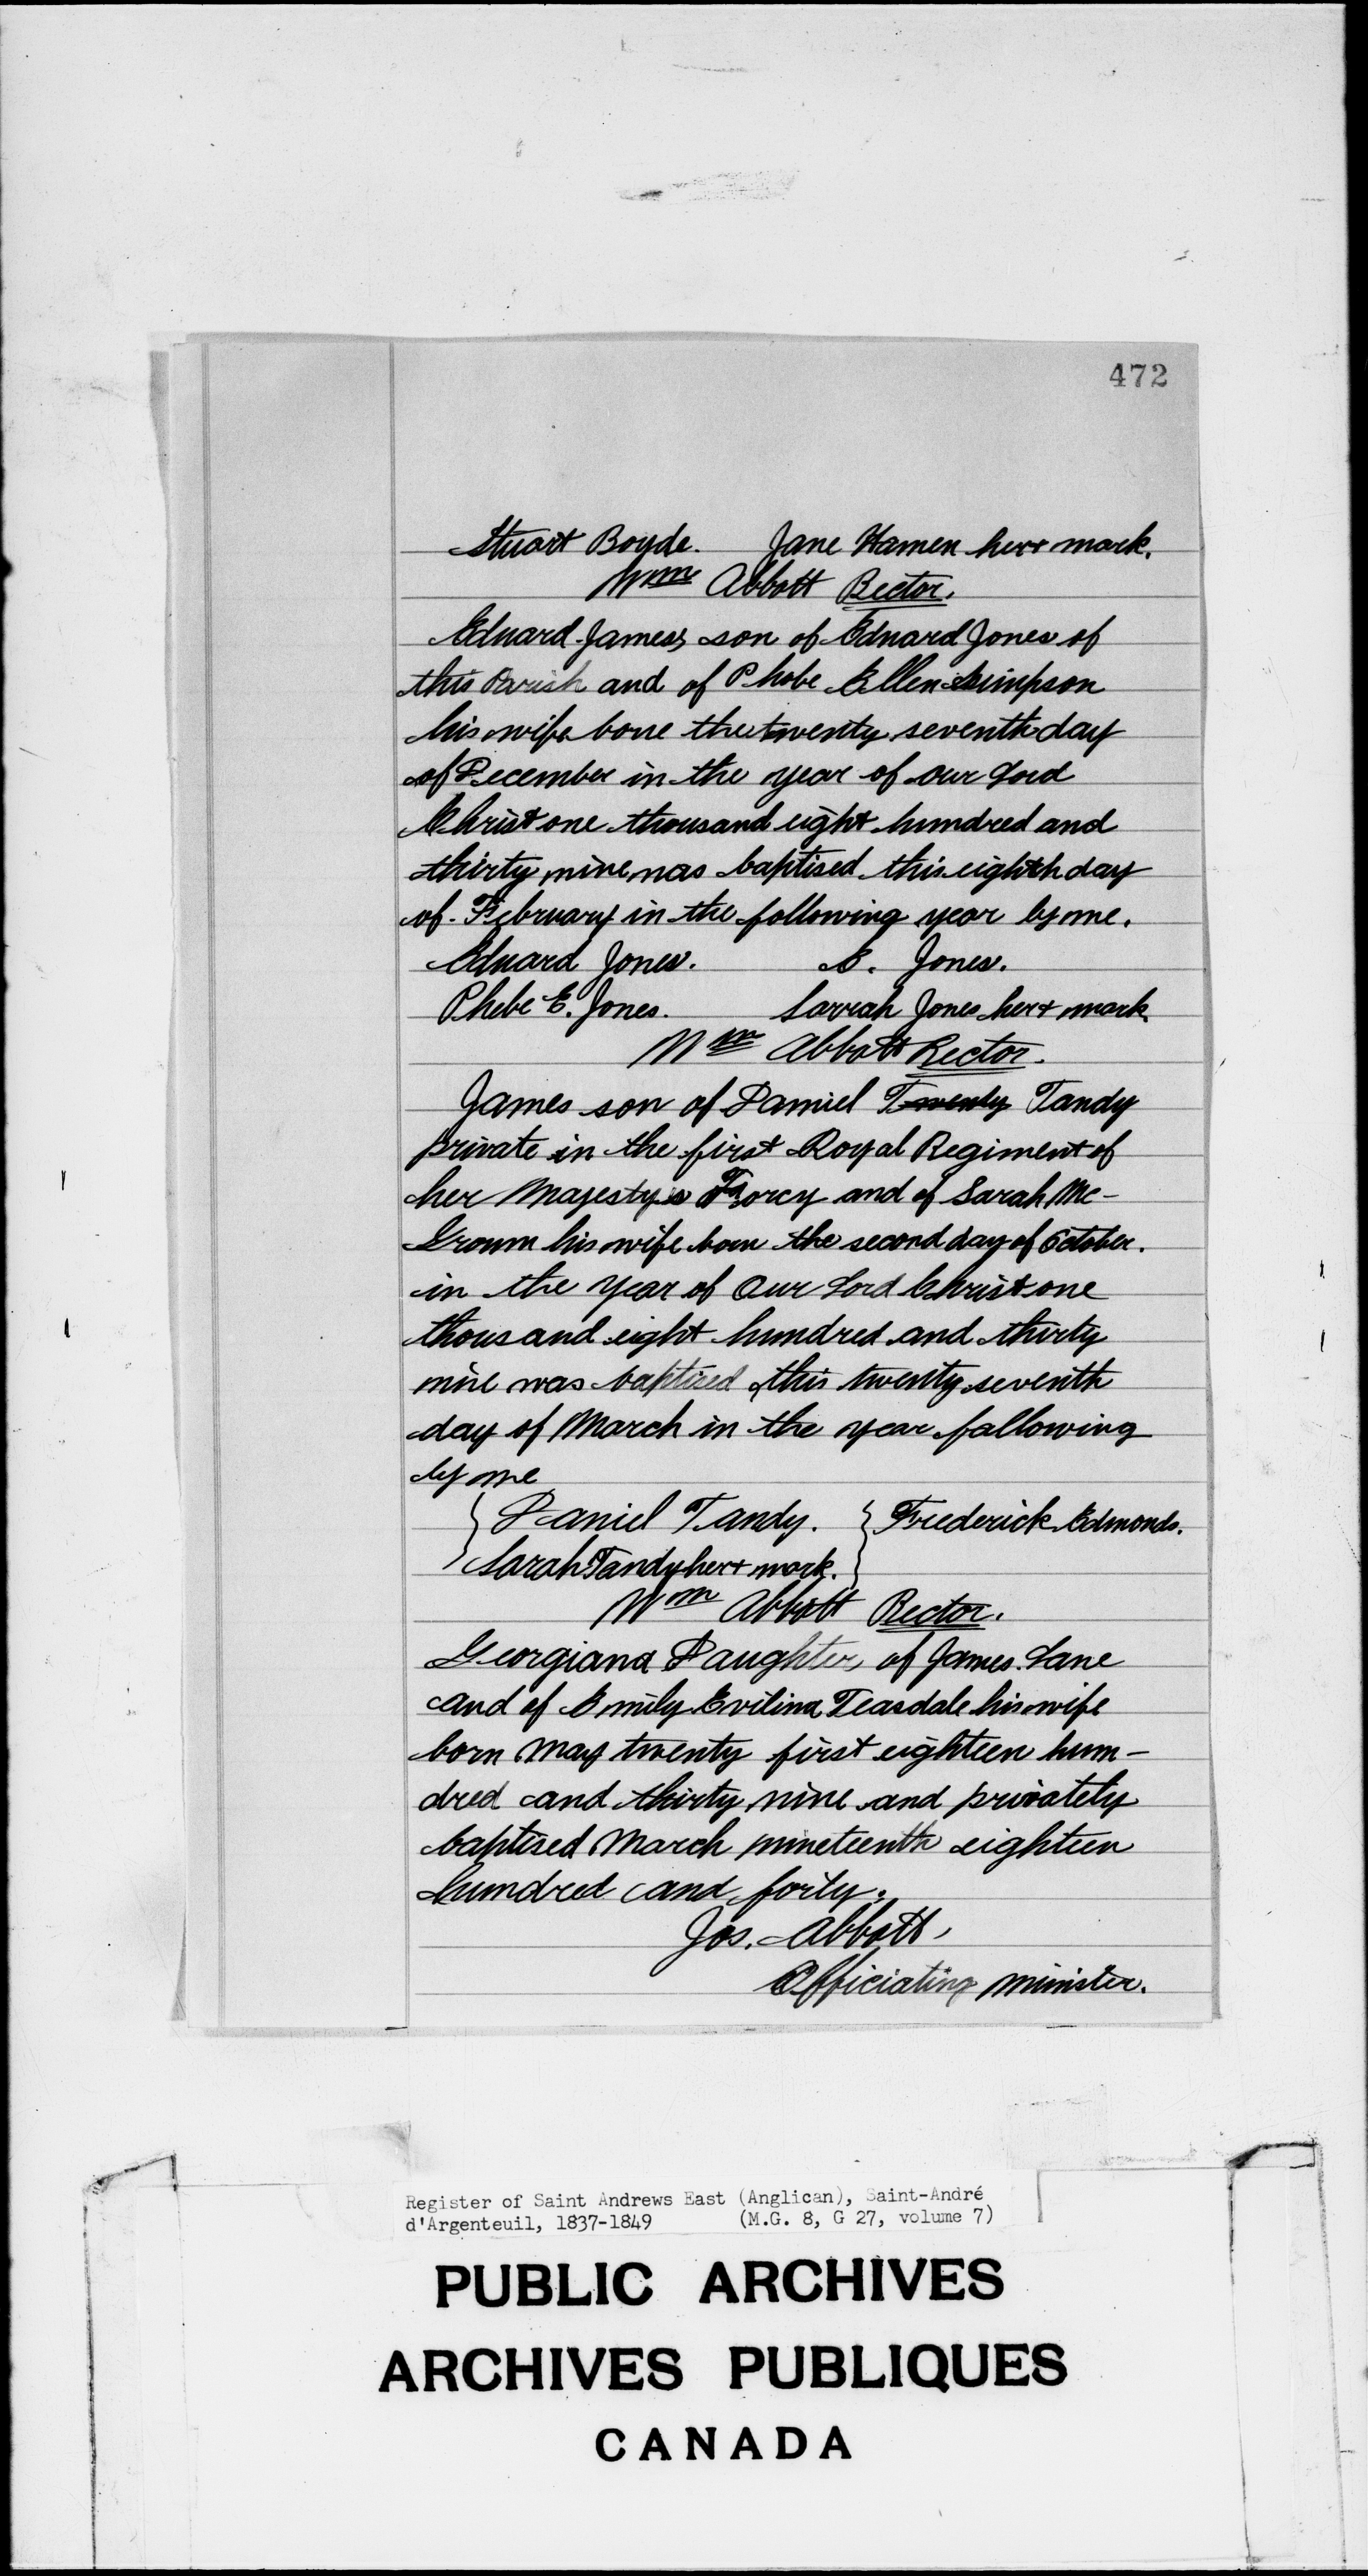 472
Stuart Boyde. Jane Hamen her + mark.
Wm Abbott Rector.
Edward James son of Edward Jones of
this Parish and of Phobe Ellen Simpson
his wife bone the twenty seventh day
of December in the year of our Lord
Christ one thousand eight hundred and
thirty nine was baptised this eighth day
of February in the following year by me.
Edward Jones. E. Jones.
Phebe E. Jones. Sarrah Jones her + mark.
Wm Abbott Rector.
James son of Daniel Twenty Tandy
private in the first Royal Regiment of
her Majesty's Forcy and of Sarah Mc-
Groum his wife born the second day of October.
in the year of Our Lord Christ one
thousand eight hundred and thirty
nine was baptised this twenty seventh
day of March in the year fallowing
by me
Daniel Tandy. Frederick Edmonds.
Sarah Tandy her + mark.
Wm Abbott Rector.
Georgiana Daughter of James Lane
and of Emily Evilina Teasdale his wife
born May twenty first eighteen hun-
dred and thirty nine and privately
baptised March nineteenth eighteen
hundred and forty.
Jos. Abbott,
Officiating minister.
Register of Saint Andrews East (Anglican), Saint-André
d'Argenteuil, 1837-1849 (M.G. 8, G 27, volume 7)
PUBLIC ARCHIVES
ARCHIVES PUBLIQUES
CANADA